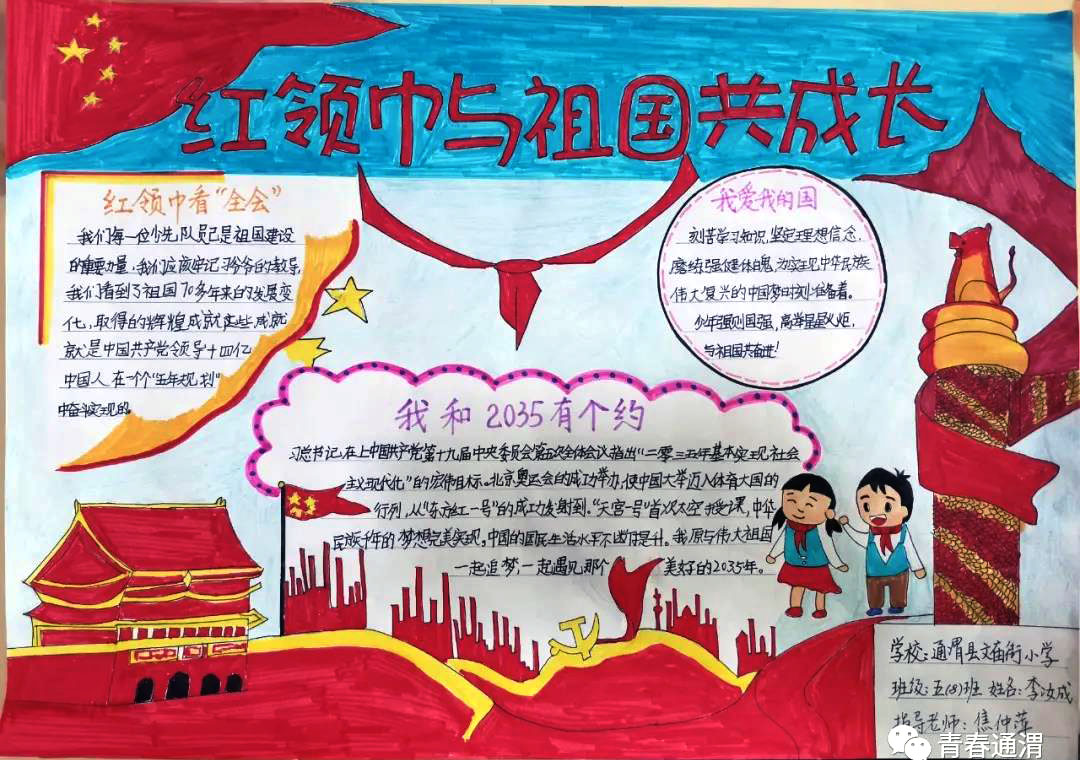 红领巾与祖国共成长
红领巾看“全会”
我们每一位少先队员已是祖国建设
的重要力量，我们应该牢记习爷爷的教导，
我们看到了祖国70多年来的发展变
化，取得的辉煌成就这些成就
就是中国共产党领导十四亿
中国人在一个个“五年规划”
中奋斗实现的。
我爱我的国
刻苦学习知识，坚定理想信念，
磨练强健体魄，为实现中华民族
伟大复兴的中国梦时刻准备着。
少年强则国强，高举星星火炬，
与祖国共奋进！
我和2035有个约
习总书记在上中国共产党第十九届中央委员会第五次全体会议指出“二零三五年基本实现社会
主义现代化”的宏伟目标。北京奥运会的成功举办，使中国大举迈入体育大国的
行列，从“东方红一号”的成功发射到。“天宫一号”首次太空授课，中华
民族千年的梦想完美实现，中国的国民生活水平不断提升。我愿与伟大祖国
一起追梦，一起遇见那个美好的2035年。
学校：通渭县文庙街小学
班级：五(8)班 姓名：李汝成
指导老师：焦仲萍
青春通渭